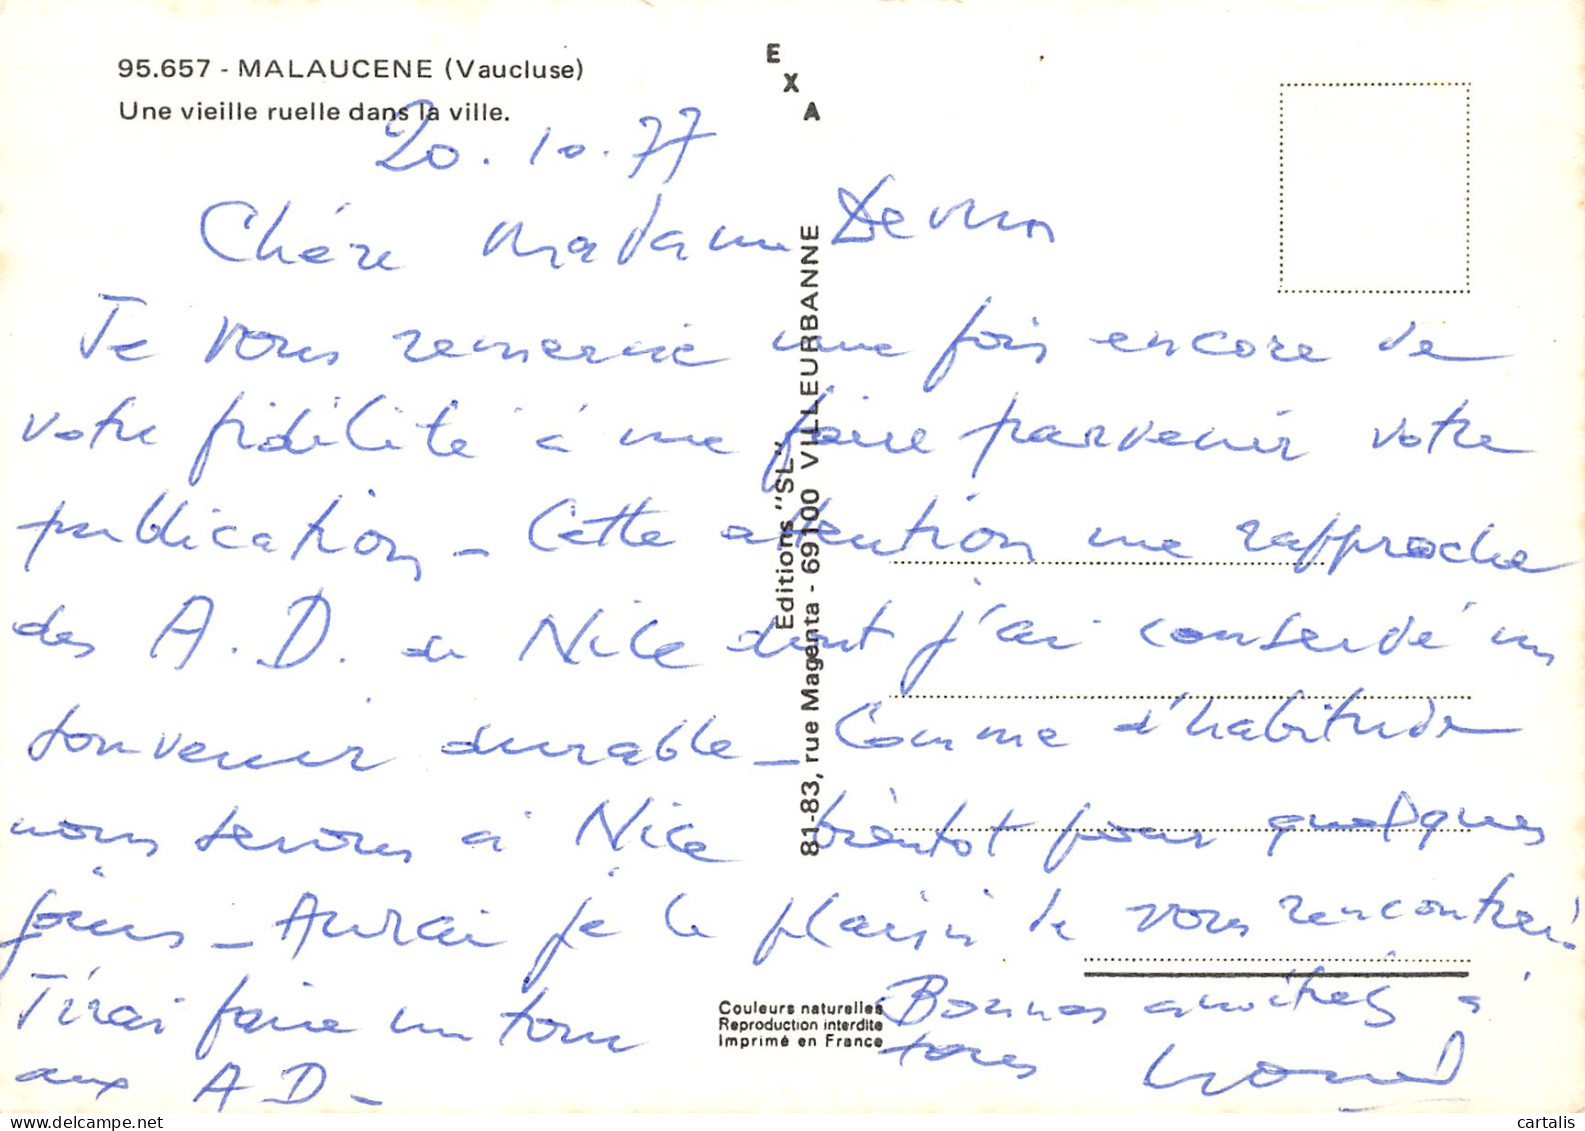 95.657 - MALAUCENE (Vaucluse)
Une vieille ruelle dans la ville.
E
X
A
20.10.77
Chère Madame
Je vous remercie une fois encore de
votre fidélité à me faire parvenir votre
publication - Cette attention me rapproche
des A.D. de Nice dont j'ai conservé un
souvenir durable - Comme d'habitude
nous serons à Nice bientôt pour quelques
jours - Aurai je le plaisir de vous rencontrer.
J'irai faire un tour
aux A D -
Bonnes amitiés à
tous
Editions "SL"
81-83, rue Magenta - 69100 VILLEURBANNE
Couleurs naturelles
Reproduction interdite
Imprimé en France
cartalis